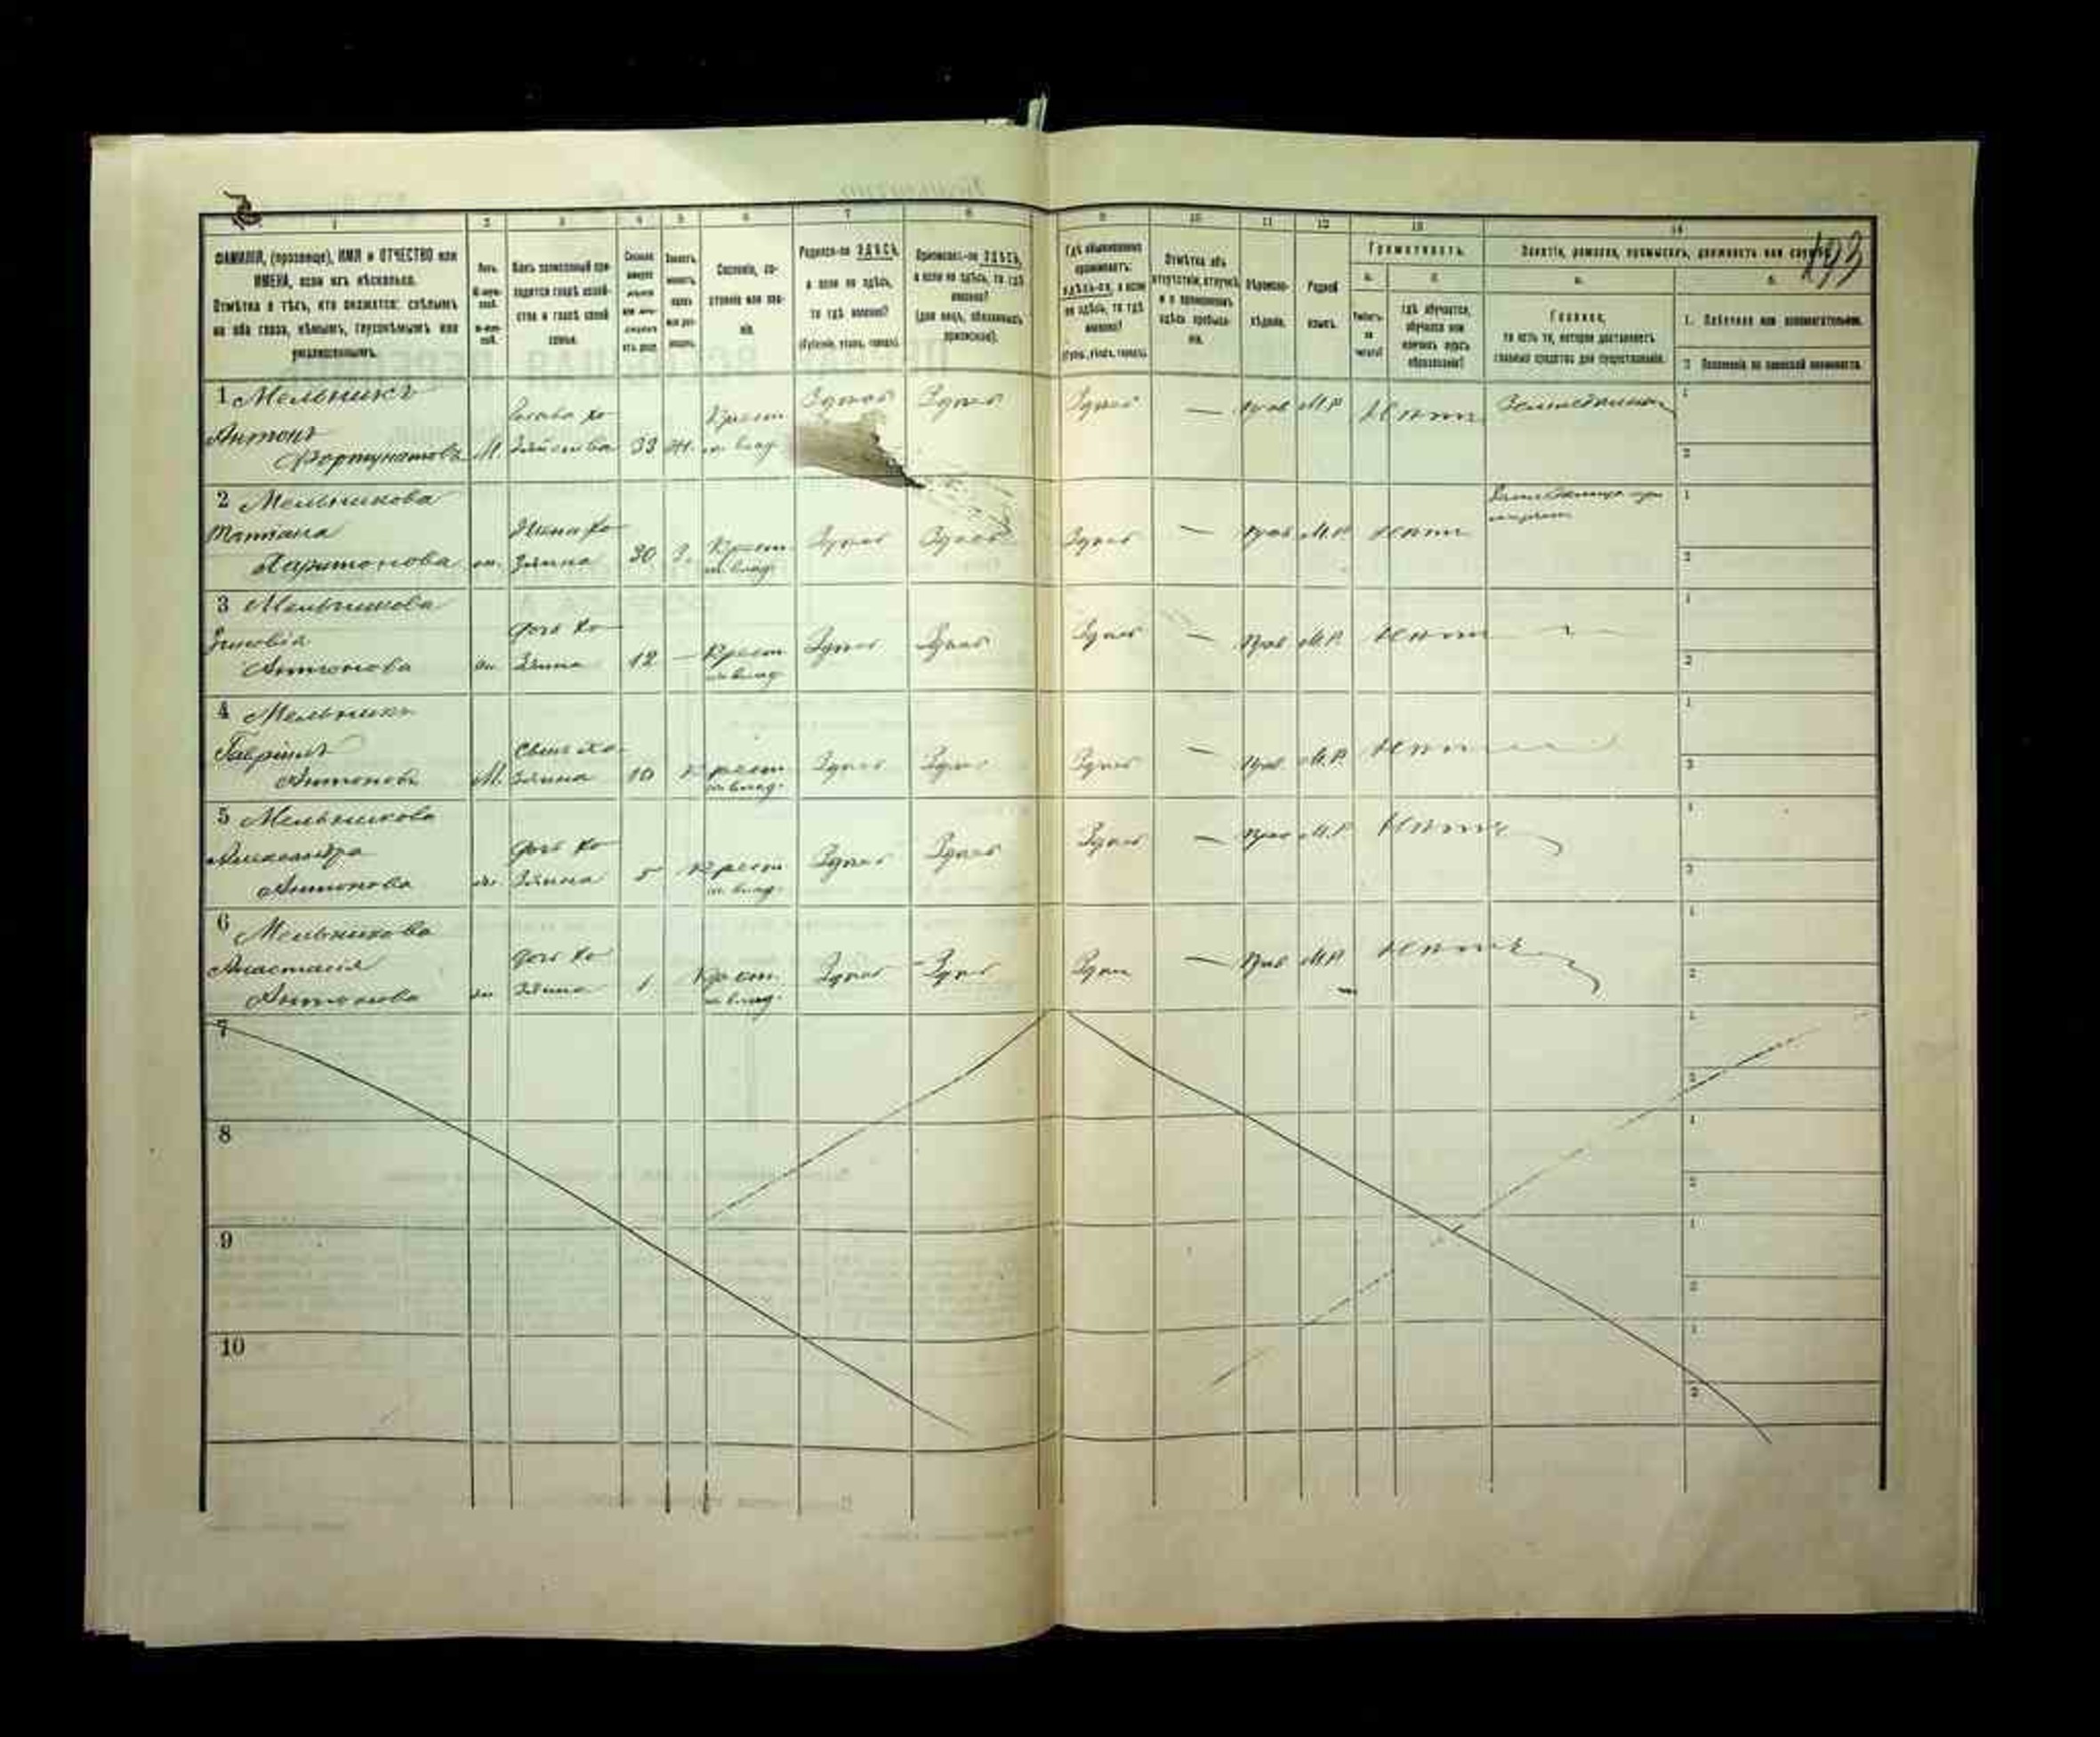 193
1 2 3 4 5 6 7 8 9 10 11 12 13 14
ФАМИЛІЯ, (прозвище), ИМЯ и ОТЧЕСТВО или
ИМЕНА, если ихъ нѣсколько.
Отмѣтка о тѣхъ, кто окажется: слѣпымъ
на оба глаза, нѣмымъ, глухонѣмымъ или
умалишеннымъ.
Полъ.
Какъ записанный при-
ходится главѣ хозяй-
ства и главѣ своей
семьи.
Сословіе, со-
стояніе или зва-
ніе.
Родился-ли ЗДѢСЬ,
а если не здѣсь,
то гдѣ именно?
(Губернія, уѣздъ, городъ).
Приписанъ-ли ЗДѢСЬ,
а если не здѣсь, то гдѣ
именно?
(для лицъ, обязанныхъ
припискою).
Гдѣ обыкновенно
проживаетъ:
здѣсь-ли, а если
не здѣсь, то гдѣ
именно?
(Губ., уѣздъ, городъ).
Отмѣтка объ
отсутствіи, отлучкѣ
и о временномъ
здѣсь пребыва-
ніи.
Вѣроиспо-
вѣданіе.
Родной
языкъ.
Грамотность.
а. б.
Умѣетъ-
ли
читать?
гдѣ обучается,
обучался или
кончилъ курсъ
образованія?
Занятіе, ремесло, промыселъ, должность или служба.
а. б.
Главное,
то есть то, которое доставляетъ
главныя средства для существованія.
1. Побочное или вспомогательное.
2. Положеніе по воинской повинности.
1 Мельникъ
Антонъ
Фортунатовъ М. Глава хо-
зяйства 33 Ж. Крест.
из влад. Здѣсь Здѣсь Здѣсь — Прав М.Р. Нѣтъ Земледѣлецъ
2 Мельникова
Татіана
Харитонова ж. Жена хо-
зяина 30 З. Крест.
из влад. Здѣсь Здѣсь Здѣсь — Прав М.Р. Нѣтъ
3 Мельникова
Зиновія
Антонова ж. Дочь хо-
зяина 12 — Крест.
из влад. Здѣсь Здѣсь Здѣсь — Прав М.Р. Нѣтъ —
4 Мельникъ
Гавріилъ
Антоновъ М. Сынъ хо-
зяина 10 Крест.
из влад. Здѣсь Здѣсь Здѣсь — Прав М.Р. Нѣтъ
5 Мельникова
Александра
Антонова ж. Дочь хо-
зяина 5 Крест.
из влад. Здѣсь Здѣсь Здѣсь — Прав М.Р. Нѣтъ
6 Мельникова
Анастасія
Антонова ж. Дочь хо-
зяина 1 Крест.
из влад. Здѣсь Здѣсь Здѣсь — Прав М.Р. Нѣтъ
7
8
9
10